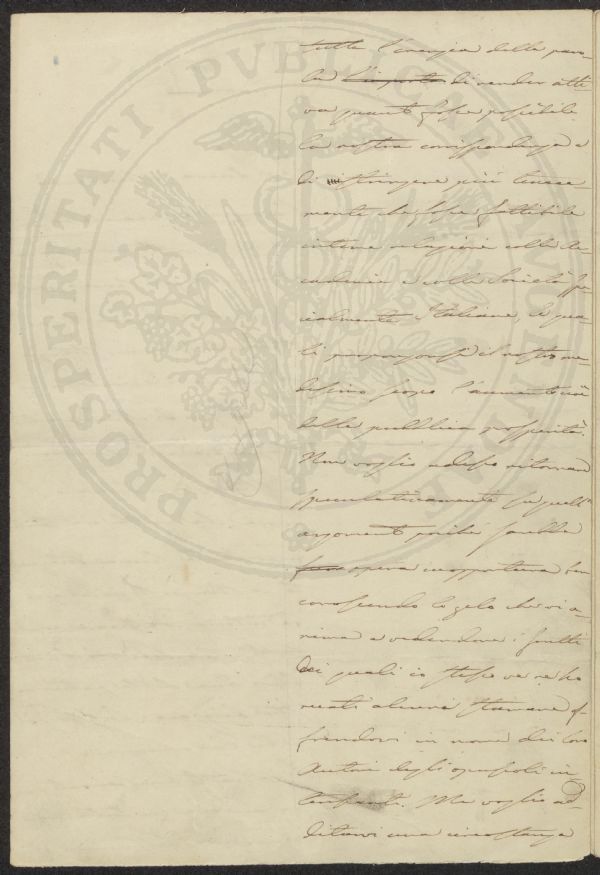 tutta l'energia della paro-
la l'importa di render atti-
va quanto fosse possibile
la nostra corrispondenza e
di stringere più tenace-
mente che fosse fattibile
intime relazioni colle Ac-
cademie e colle Società spe-
cialmente Italiane, le qua-
li propongonsi il nostro me-
desimo scopo l'aumento cioè
della pubblica prosperità.
Non voglio adesso ritornare
specul­ativamente su quell'
argomento poiché sarebbe
opera inopportuna ben
conoscendo lo zelo che vi a-
nima e vedendone i frutti
dei quali io stesso ve ne ho
recati alcuni stamane of-
frendovi in nome dei loro
Autori degli opuscoli in-
teressanti. Ma voglio ad-
ditarvi una circostanza
PROSPERITATI PVBLICAE AVGENDAE